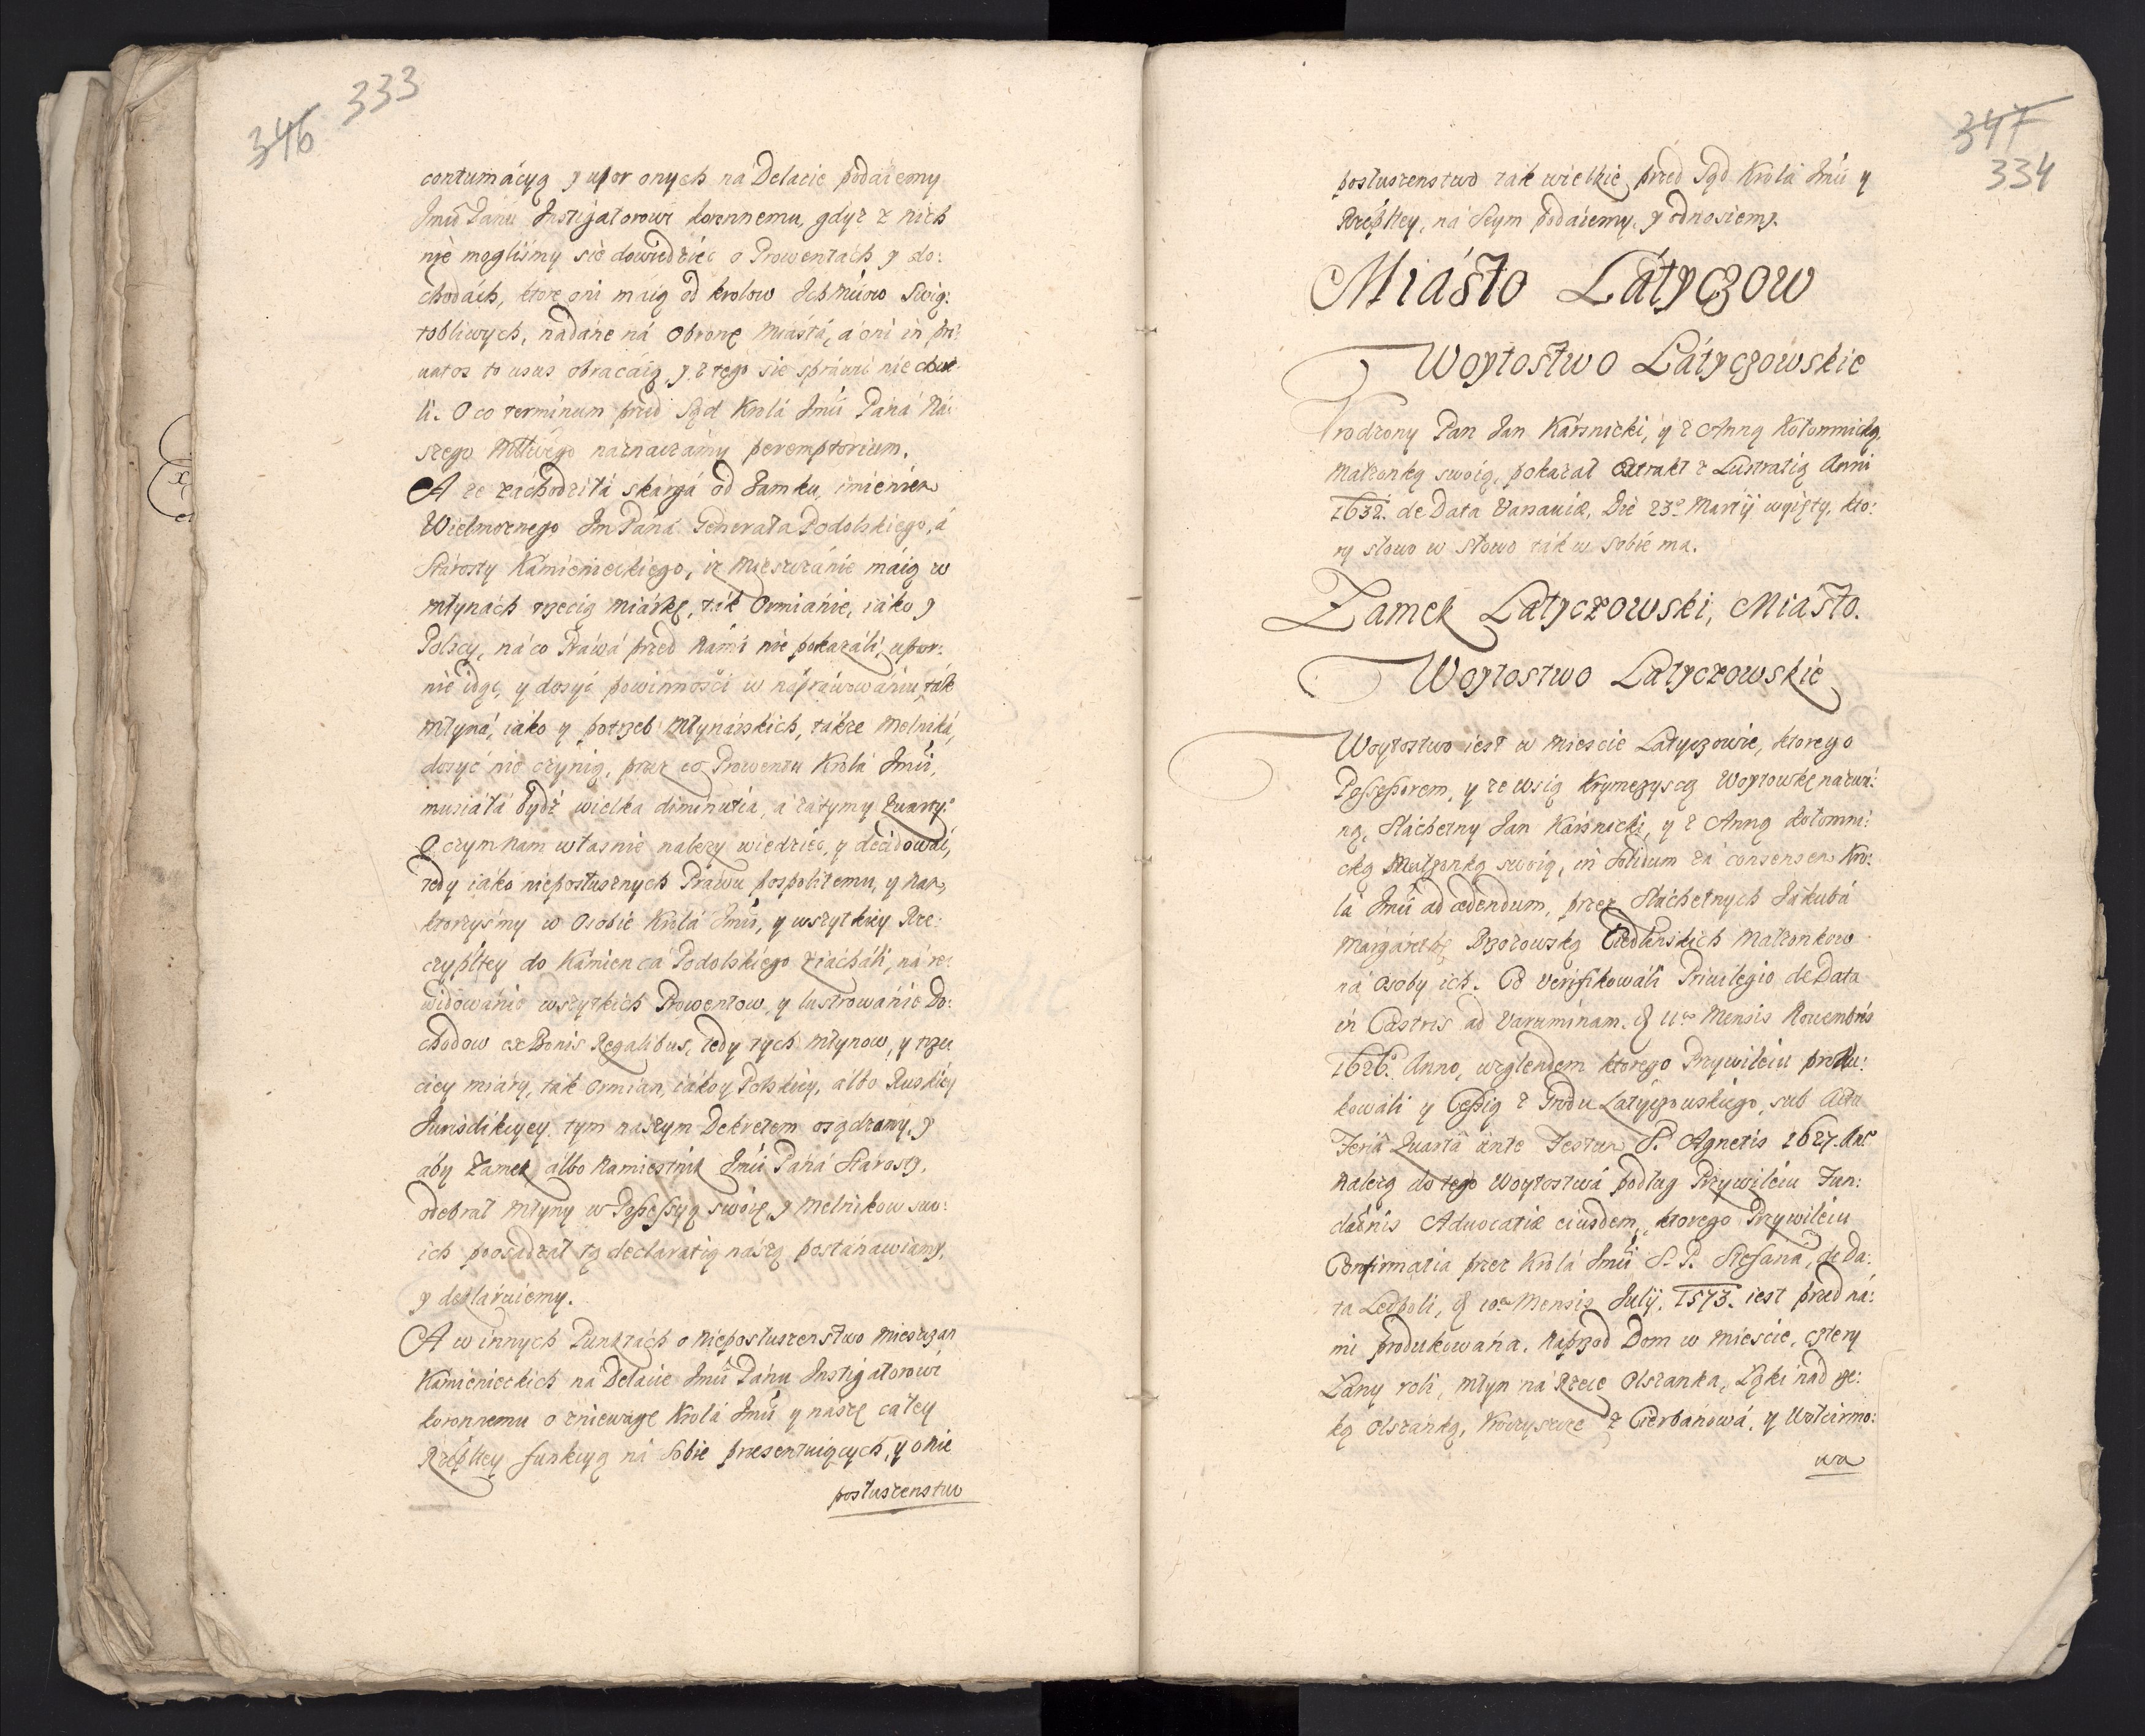 346 333
contumácyą y upor onych ná Delacie podáiemy
Jmći Pánu Instigatorowi koronnemu, gdyż z nich
nie moglismy sie dowiedziec o Prowentách y do:
chodách, ktore oni máią od krolow Ichmciow Swią:
tobliwych, nadane ná obronę miástá, á oni in pri:
uatos to usus obracáią y z tego sie spráwić nie chcie
li. O co terminum przed Sąd Krolá Jmći Páná Ná:
szego Młćiwego náznaczamy peremptorium.
A że záchodziłá skárgá od Zamku, imieniem
Wielmożnego Jm Páná Generała Podolskiego, á
Stárosty Kámienieckiego, iż Mieszczánie máią w
młynách trzecią miárkę, ták Ormiánie, iáko y
Polscy, ná co Práwá przed Námi nie pokazáli, upor:
nie idąc, y dosyć powinności w nápráwowániu ták
młyná, iáko y potrzeb Młynárskich, tákże Melniká,
dosyć nie czynią, przez co Prowentu Krolá Jmći,
musiáłá bydź wielka diminutia, á zátym y Quarty.
O czym Nam własnie należy wiedziec, y decidowáć,
tedy iáko nieposłusznych Práwu pospolitemu, y Nas,
ktorzysmy w Osobie Krolá Jmći, y wszytkiey Rze:
czypltey do Kámiencá Podolskiego ziácháli, ná re:
widowánie wszytkich Prowentow, y lustrowánie Do:
chodow ex Bonis Regalibus, tedy tych młynow, y trze
ciey miáry, ták Ormian, iáko y Polskiey, álbo Ruskiey
Jurisdikcyey, tym nászym Dekretem osądzamy, y
áby Zamek álbo Namiestnik Jmći Páná Stárosty,
odebrał młyny w Possessyą swoię, y Melnikow swo:
ich poosadzał tą declaratią nászą postánawiamy,
y deklaruiemy.
A w innych Punktách o nieposłuszenstwo mieszczan
Kámienieckich ná Delacie Jmći Pánu Instigatorowi
koronnemu o zniewagę Krolá Jmći y nászę cáłey
Rzeplitey funkcyą ná Sobie præsentuiących, y o nie
posłuszenstwo
347
334
posłuszenstwo ták wielkie przed Sąd Krolá Jmći y
Rzeplitey, ná Seym podáiemy, y odnosiemy.
Miásto Látyczow
Woytostwo Látyczowskie
Vrodzony Pan Jan Kárśnicki, y z Anną Kołomnicką,
Małzonką swoią, pokazał extrakt z Lustratią Anni
1632. de Data Varsaviæ, Die 23º Martij wyięty, kto:
ry słowo w słowo ták w sobie ma.
Zamek Latyczowski, Miásto.
Woytostwo Latyczowskie
Woytostwo iest w miescie Latyczowie, ktorego
Possessorem, y ze wsią Krymczyscą Woytowkę názwá:
ną, Sláchetny Jan Kárśnicki, y z Anną Kołomni:
cką Małzonką swoią, in solidum zá consensem Kro:
lá Jmći ad cedendum, przez Sláchetnych Jákubá
Margáretę Brzozowską Małzonkow
ná osoby ich. Co verifikowáli Privilegio de Data
in Castris ad Varuminam. Mensis Nouembris
1626. Anno, względem ktorego Przywileiu produ:
kowáli y Cessią z Grodu Latyczowskiego, sub Actu
Feriâ Quartâ ante Festum S. Agnetis 1627. Anº
Należą do tego Woytostwá podług Przywileiu Fun:
dationis Aduocatiæ eiusdem, ktorego Przywileiu
Confirmatia przez Krolá Jmći S. P. Stefaná, de Da:
ta Leopoli, Mensis Julij. 1573. iest przed ná:
mi produkowána. Naprzod Dom w mieście, cztery
Łany roli, młyn ná Rzece Olszanka, Łąki nád rze:
ką Olszánką, y
wa